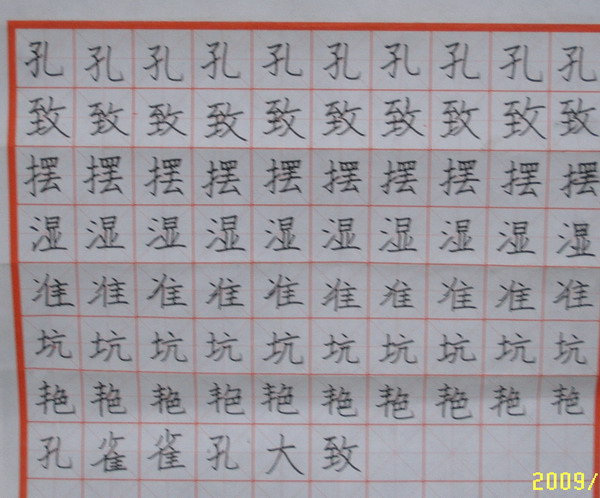 孔孔孔孔孔孔孔孔孔孔
致致致致致致致致致致
摆摆摆摆摆摆摆摆摆摆
湿湿湿湿湿湿湿湿湿湿
准准准准准准准准准准
坑坑坑坑坑坑坑坑坑坑
艳艳艳艳艳艳艳艳艳艳
孔雀雀孔大致
2009/